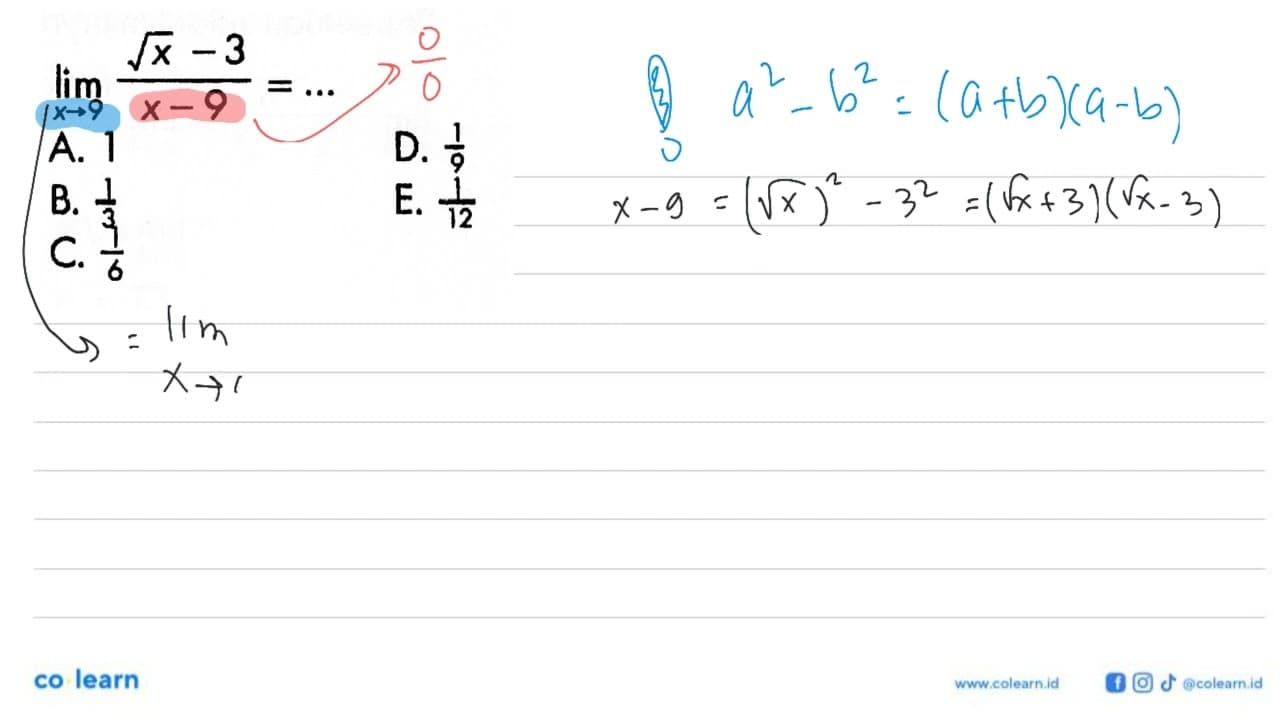 lim x→9 (√x − 3)/(x − 9) = ...
0/0
A. 1
B. 1/3
C. 1/6
D. 1/9
E. 1/12
a² − b² = (a+b)(a−b)
x − 9 = (√x)² − 3² = (√x + 3)(√x − 3)
= lim
x →
co learn
www.colearn.id
@colearn.id